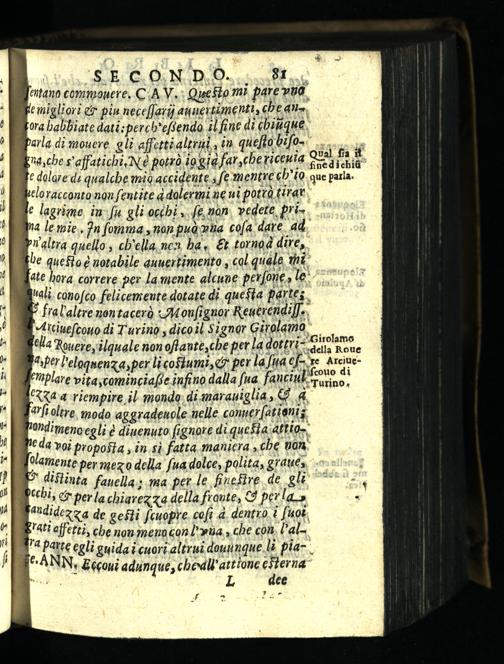 SECONDO. 81
sentano commouere. CAV. Questo mi pare vno
de migliori & piu necessarij auuertimenti, che an-
cora habbiate dati: perch'essendo il fine di chiũque
parla di mouere gli affetti altrui, in questo biso-
gna, che s'affatichi. Nè potrò io già far, che riceuia
te dolore di qualche mio accidente, se mentre ch'io
uelo racconto non sentite à dolermi ne ui potrò tirar
le lagrime in su gli occhi, se non vedete pri-
ma le mie. In somma, non può vna cosa dare ad
vn'altra quello, ch'ella non ha. Et torno à dire,
che questo è notabile auuertimento, col quale mi
fate hora correre per la mente alcune persone, le
quali conosco felicemente dotate di questa parte;
& fra l'altre non tacerò Monsignor Reuerendiss.
l'Arciuescouo di Turino, dico il Signor Girolamo
della Rouere, ilquale non ostante, che per la dottri-
na, per l'eloquenza, per li costumi, & per la sua es-
semplare vita, cominciasse infino dalla sua fanciul
lezza a riempire il mondo di marauiglia, & a
farsi oltre modo aggradeuole nelle conuersationi;
nondimeno egli è diuenuto signore di questa attio-
ne da voi proposta, in si fatta maniera, che non
solamente per mezo della sua dolce, polita, graue,
& distinta fauella; ma per le finestre de gli
occhi, & per la chiarezza della fronte, & per la
candidezza de gesti scuopre così à dentro i suoi
grati affetti, che non meno con l'vna, che con l'al-
tra parte egli guida i cuori altrui douunque li pia-
ce. ANN. Eccoui adunque, che all'attione esterna
L dee
Qual sia il
fine di chiũ
que parla.
Girolamo
della Roue
re Arciue-
scouo di
Turino.